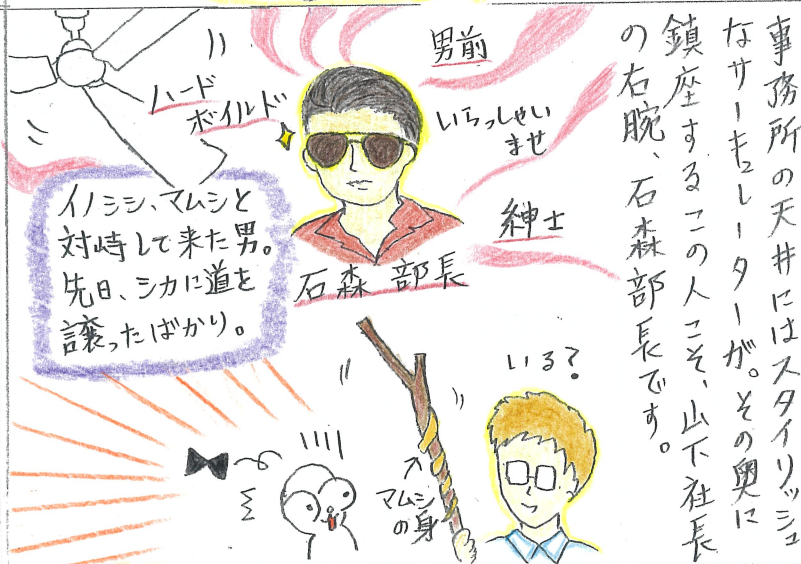 事務所の天井にはスタイリッシュ
なサーキュレーターが。その奥に
鎮座するこの人こそ、山下社長
の右腕、石森部長です。
男前
いらっしゃい
ませ
紳士
ハード
ボイルド
石森 部長
イノシシ、マムシと
対峙して来た男。
先日、シカに道を
譲ったばかり。
いる?
マムシ
の身